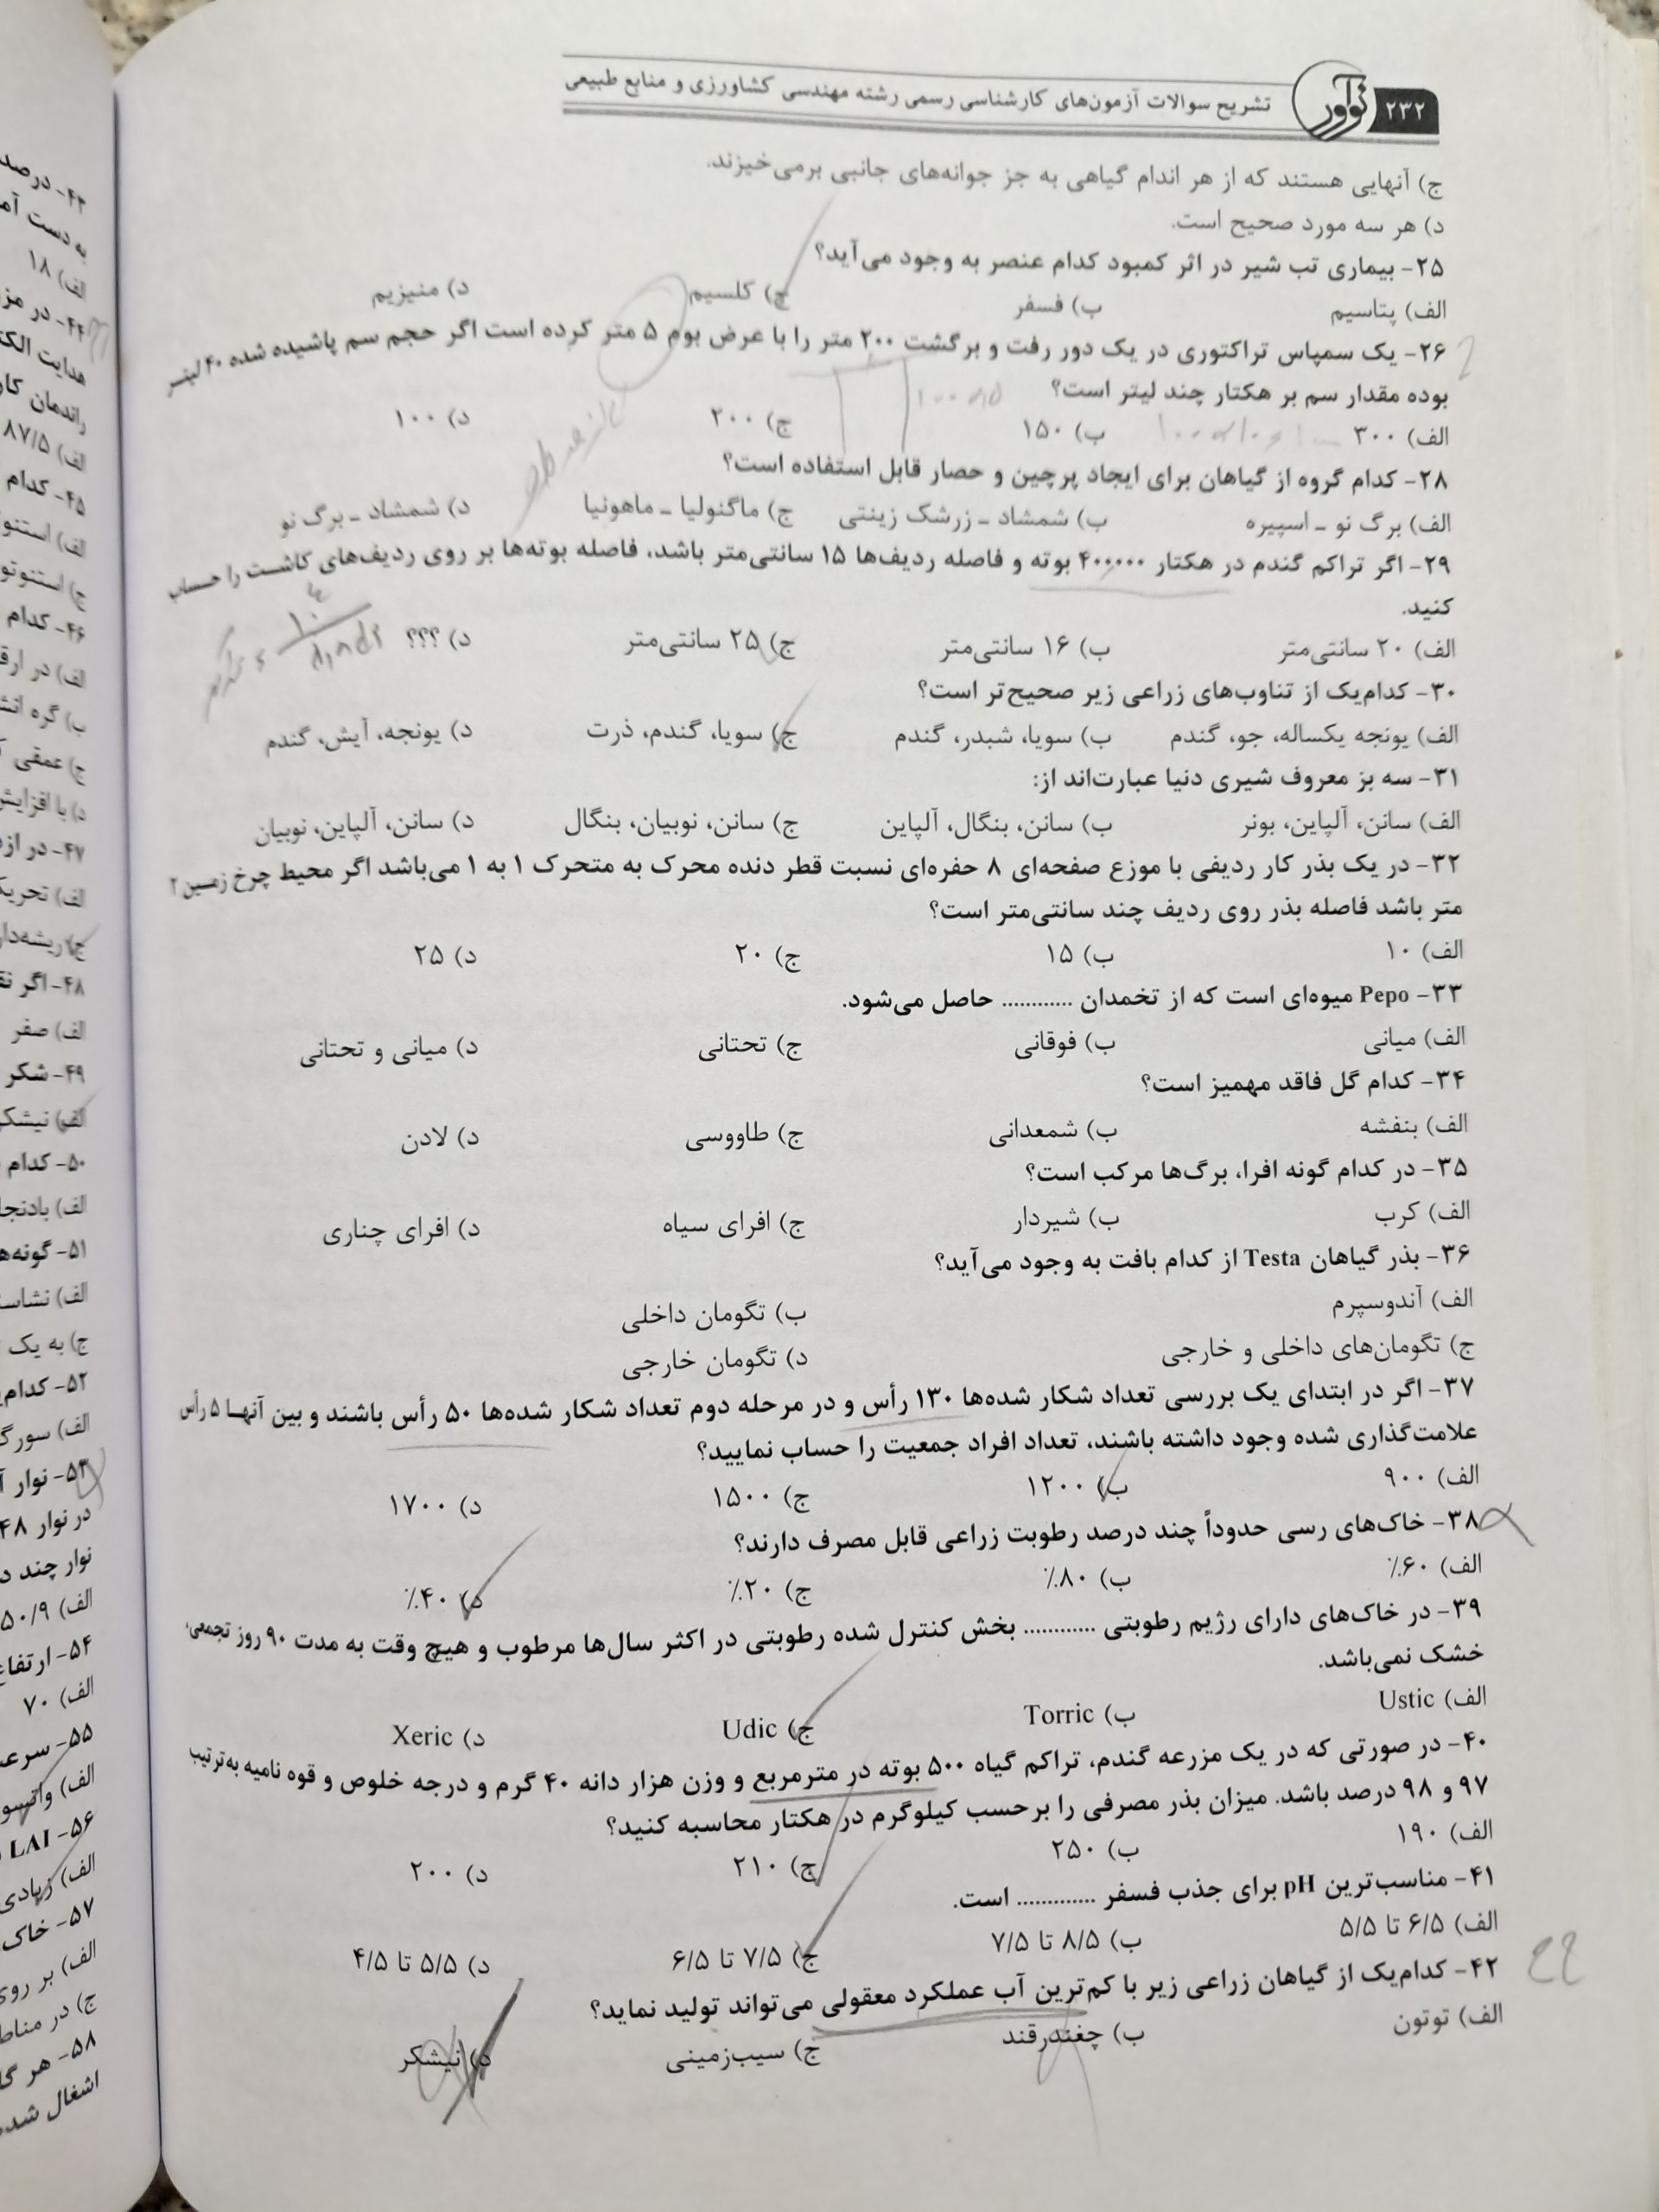 ۲۳۲ نوآور تشریح سوالات آزمون‌های کارشناسی رسمی رشته مهندسی کشاورزی و منابع طبیعی
ج) آنهایی هستند که از هر اندام گیاهی به جز جوانه‌های جانبی برمی‌خیزند.
د) هر سه مورد صحیح است.
۲۵- بیماری تب شیر در اثر کمبود کدام عنصر به وجود می‌آید؟
الف) پتاسیم ب) فسفر ج) کلسیم د) منیزیم
۲۶- یک سمپاس تراکتوری در یک دور رفت و برگشت ۲۰۰ متر را با عرض بوم ۵ متر کرده است اگر حجم سم پاشیده شده ۴۰ لیتر
بوده مقدار سم بر هکتار چند لیتر است؟
الف) ۳۰۰ ب) ۱۵۰ ج) ۲۰۰ د) ۱۰۰
۲۸- کدام گروه از گیاهان برای ایجاد پرچین و حصار قابل استفاده است؟
الف) برگ نو ـ اسپیره ب) شمشاد ـ زرشک زینتی ج) ماگنولیا ـ ماهونیا د) شمشاد ـ برگ نو
۲۹- اگر تراکم گندم در هکتار ۴۰۰۰۰۰ بوته و فاصله ردیف‌ها ۱۵ سانتی‌متر باشد، فاصله بوته‌ها بر روی ردیف‌های کاشت را حساب
کنید.
الف) ۲۰ سانتی‌متر ب) ۱۶ سانتی‌متر ج) ۲۵ سانتی‌متر د) ؟؟؟
۳۰- کدام‌یک از تناوب‌های زراعی زیر صحیح‌تر است؟
الف) یونجه یکساله، جو، گندم ب) سویا، شبدر، گندم ج) سویا، گندم، ذرت د) یونجه، آیش، گندم
۳۱- سه بز معروف شیری دنیا عبارت‌اند از:
الف) سانن، آلپاین، بونر ب) سانن، بنگال، آلپاین ج) سانن، نوبیان، بنگال د) سانن، آلپاین، نوبیان
۳۲- در یک بذر کار ردیفی با موزع صفحه‌ای ۸ حفره‌ای نسبت قطر دنده محرک به متحرک ۱ به ۱ می‌باشد اگر محیط چرخ زمین ۲
متر باشد فاصله بذر روی ردیف چند سانتی‌متر است؟
الف) ۱۰ ب) ۱۵ ج) ۲۰ د) ۲۵
۳۳- Pepo میوه‌ای است که از تخمدان ............ حاصل می‌شود.
الف) میانی ب) فوقانی ج) تحتانی د) میانی و تحتانی
۳۴- کدام گل فاقد مهمیز است؟
الف) بنفشه ب) شمعدانی ج) طاووسی د) لادن
۳۵- در کدام گونه افرا، برگ‌ها مرکب است؟
الف) کرب ب) شیردار ج) افرای سیاه د) افرای چناری
۳۶- بذر گیاهان Testa از کدام بافت به وجود می‌آید؟
الف) آندوسپرم ب) تگومان داخلی
ج) تگومان‌های داخلی و خارجی د) تگومان خارجی
۳۷- اگر در ابتدای یک بررسی تعداد شکار شده‌ها ۱۳۰ رأس و در مرحله دوم تعداد شکار شده‌ها ۵۰ رأس باشند و بین آنها ۵ رأس
علامت‌گذاری شده وجود داشته باشند، تعداد افراد جمعیت را حساب نمایید؟
الف) ۹۰۰ ب) ۱۲۰۰ ج) ۱۵۰۰ د) ۱۷۰۰
۳۸- خاک‌های رسی حدوداً چند درصد رطوبت زراعی قابل مصرف دارند؟
الف) ۶۰٪ ب) ۸۰٪ ج) ۲۰٪ د) ۴۰٪
۳۹- در خاک‌های دارای رژیم رطوبتی ............ بخش کنترل شده رطوبتی در اکثر سال‌ها مرطوب و هیچ وقت به مدت ۹۰ روز تجمعی،
خشک نمی‌باشد.
الف) Ustic ب) Torric ج) Udic د) Xeric
۴۰- در صورتی که در یک مزرعه گندم، تراکم گیاه ۵۰۰ بوته در مترمربع و وزن هزار دانه ۴۰ گرم و درجه خلوص و قوه نامیه به‌ترتیب
۹۷ و ۹۸ درصد باشد. میزان بذر مصرفی را برحسب کیلوگرم در هکتار محاسبه کنید؟
الف) ۱۹۰ ب) ۲۵۰ ج) ۲۱۰ د) ۲۰۰
۴۱- مناسب‌ترین pH برای جذب فسفر ............. است.
الف) ۶/۵ تا ۵/۵ ب) ۸/۵ تا ۷/۵ ج) ۷/۵ تا ۶/۵ د) ۵/۵ تا ۴/۵
۴۲- کدام‌یک از گیاهان زراعی زیر با کم‌ترین آب عملکرد معقولی می‌تواند تولید نماید؟
الف) توتون ب) چغندرقند ج) سیب‌زمینی د) نیشکر
۴۳- درصد
به دست آم
الف) ۱۸
۴۴- در مز
هدایت الکت
راندمان کار
الف) ۸۷/۵
۴۵- کدام
الف) استنو
ج) استنوتو
۴۶- کدام
الف) در ارق
ب) گره انش
ج) عمقی
د) با افزایش
۴۷- در از
الف) تحریک
ج) ریشه‌دار
۴۸- اگر نق
الف) صفر
۴۹- شکر
الف) نیشکر
۵۰- کدام
الف) بادنجا
۵۱- گونه‌ه
الف) نشاست
ج) به یک
۵۲- کدام‌ی
الف) سورگ
۵۳- نوار آ
در نوار ۴۸
نوار چند د
الف) ۵۰/۹
۵۴- ارتفاع
الف) ۷۰
۵۵- سرعت
الف) واتسو
۵۶- LAI
الف) زیادی
۵۷- خاک
الف) بر روی
ج) در مناط
۵۸- هر گا
اشغال شده